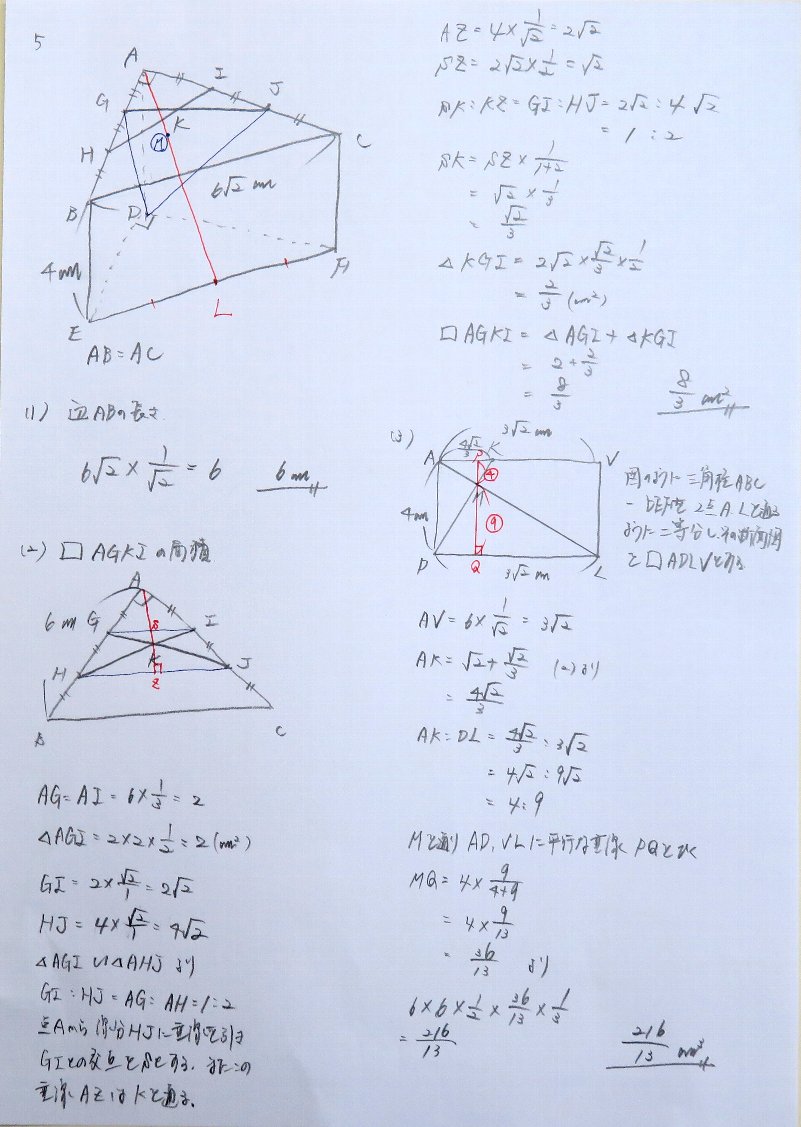 5
A
I
G
J
K
C
H
M
6√2 cm
B
D
4cm
F
L
E
AB=AC
(1) 辺ABの長さ
6√2 × 1/√2 = 6
6cm
(2) □ AGKIの面積
A
6cm
G
S
I
H
K
J
Z
B
C
AG=AI=6×1/3=2
△AGI=2×2×1/2=2(cm²)
GI=2×√2/1=2√2
HJ=4×√2/1=4√2
△AGI∽△AHJ より
GI:HJ=AG:AH=1:2
点Aから線分HJに垂線を引き
GIとの交点をSとする。またこの
垂線AZはKを通る。
AZ=4×1/√2=2√2
SZ=2√2×1/2=√2
SK:KZ=GI:HJ=2√2:4√2
=1:2
SK=SZ×1/1+2
=√2×1/3
=√2/3
△KGI=2√2×√2/3×1/2
=2/3(cm²)
□AGKI=△AGI+△KGI
=2+2/3
=8/3
8/3 cm²
(3)
3√2 cm
4√2/3
A
P
K
V
④
4cm
⑨
D
Q
3√2 cm
L
図のように三角柱ABC
-DEFを2点A.Lを通る
ように二等分しその断面図
を□ADLVとする
AV=6×1/√2=3√2
AK=√2+√2/3 (2)より
=4√2/3
AK:DL=4√2/3:3√2
=4√2:9√2
=4:9
Mを通りAD,VLに平行な直線PQをひく
MQ=4×9/4+9
=4×9/13
=36/13 より
6×6×1/2×36/13×1/3
=216/13
216/13 cm³